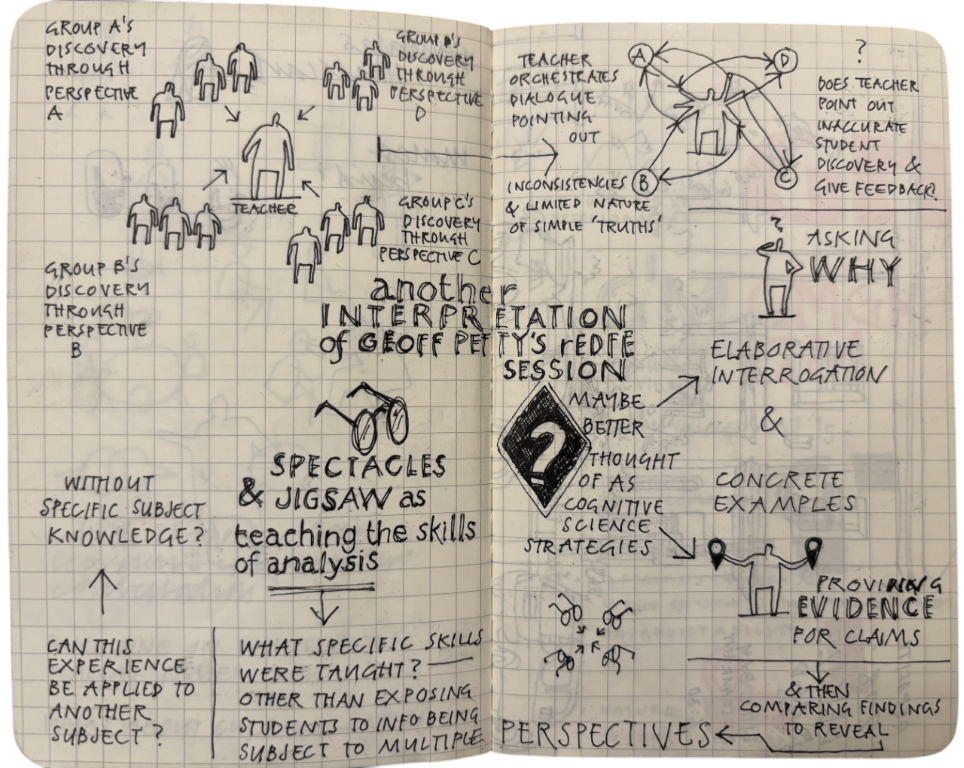 GROUP A'S
DISCOVERY
THROUGH
PERSPECTIVE
A
GROUP D'S
DISCOVERY
THROUGH
PERSPECTIVE
D
TEACHER
GROUP B'S
DISCOVERY
THROUGH
PERSPECTIVE
B
GROUP C'S
DISCOVERY
THROUGH
PERSPECTIVE C
TEACHER
ORCHESTRATES
DIALOGUE
POINTING
OUT
INCONSISTENCIES
& LIMITED NATURE
OF SIMPLE 'TRUTHS'
A
D
B
C
?
DOES TEACHER
POINT OUT
INACCURATE
STUDENT
DISCOVERY &
GIVE FEEDBACK?
another
INTERPRETATION
of GEOFF PETTY'S rEDFE
SESSION
?
ASKING
WHY
SPECTACLES
& JIGSAW as
teaching the skills
of analysis
WITHOUT
SPECIFIC SUBJECT
KNOWLEDGE?
CAN THIS
EXPERIENCE
BE APPLIED TO
ANOTHER
SUBJECT?
WHAT SPECIFIC SKILLS
WERE TAUGHT?
OTHER THAN EXPOSING
STUDENTS TO INFO BEING
SUBJECT TO MULTIPLE
PERSPECTIVES
?
MAYBE
BETTER
THOUGHT
OF AS
COGNITIVE
SCIENCE
STRATEGIES
ELABORATIVE
INTERROGATION
&
CONCRETE
EXAMPLES
PROVIDING
EVIDENCE
FOR CLAIMS
& THEN
COMPARING FINDINGS
TO REVEAL